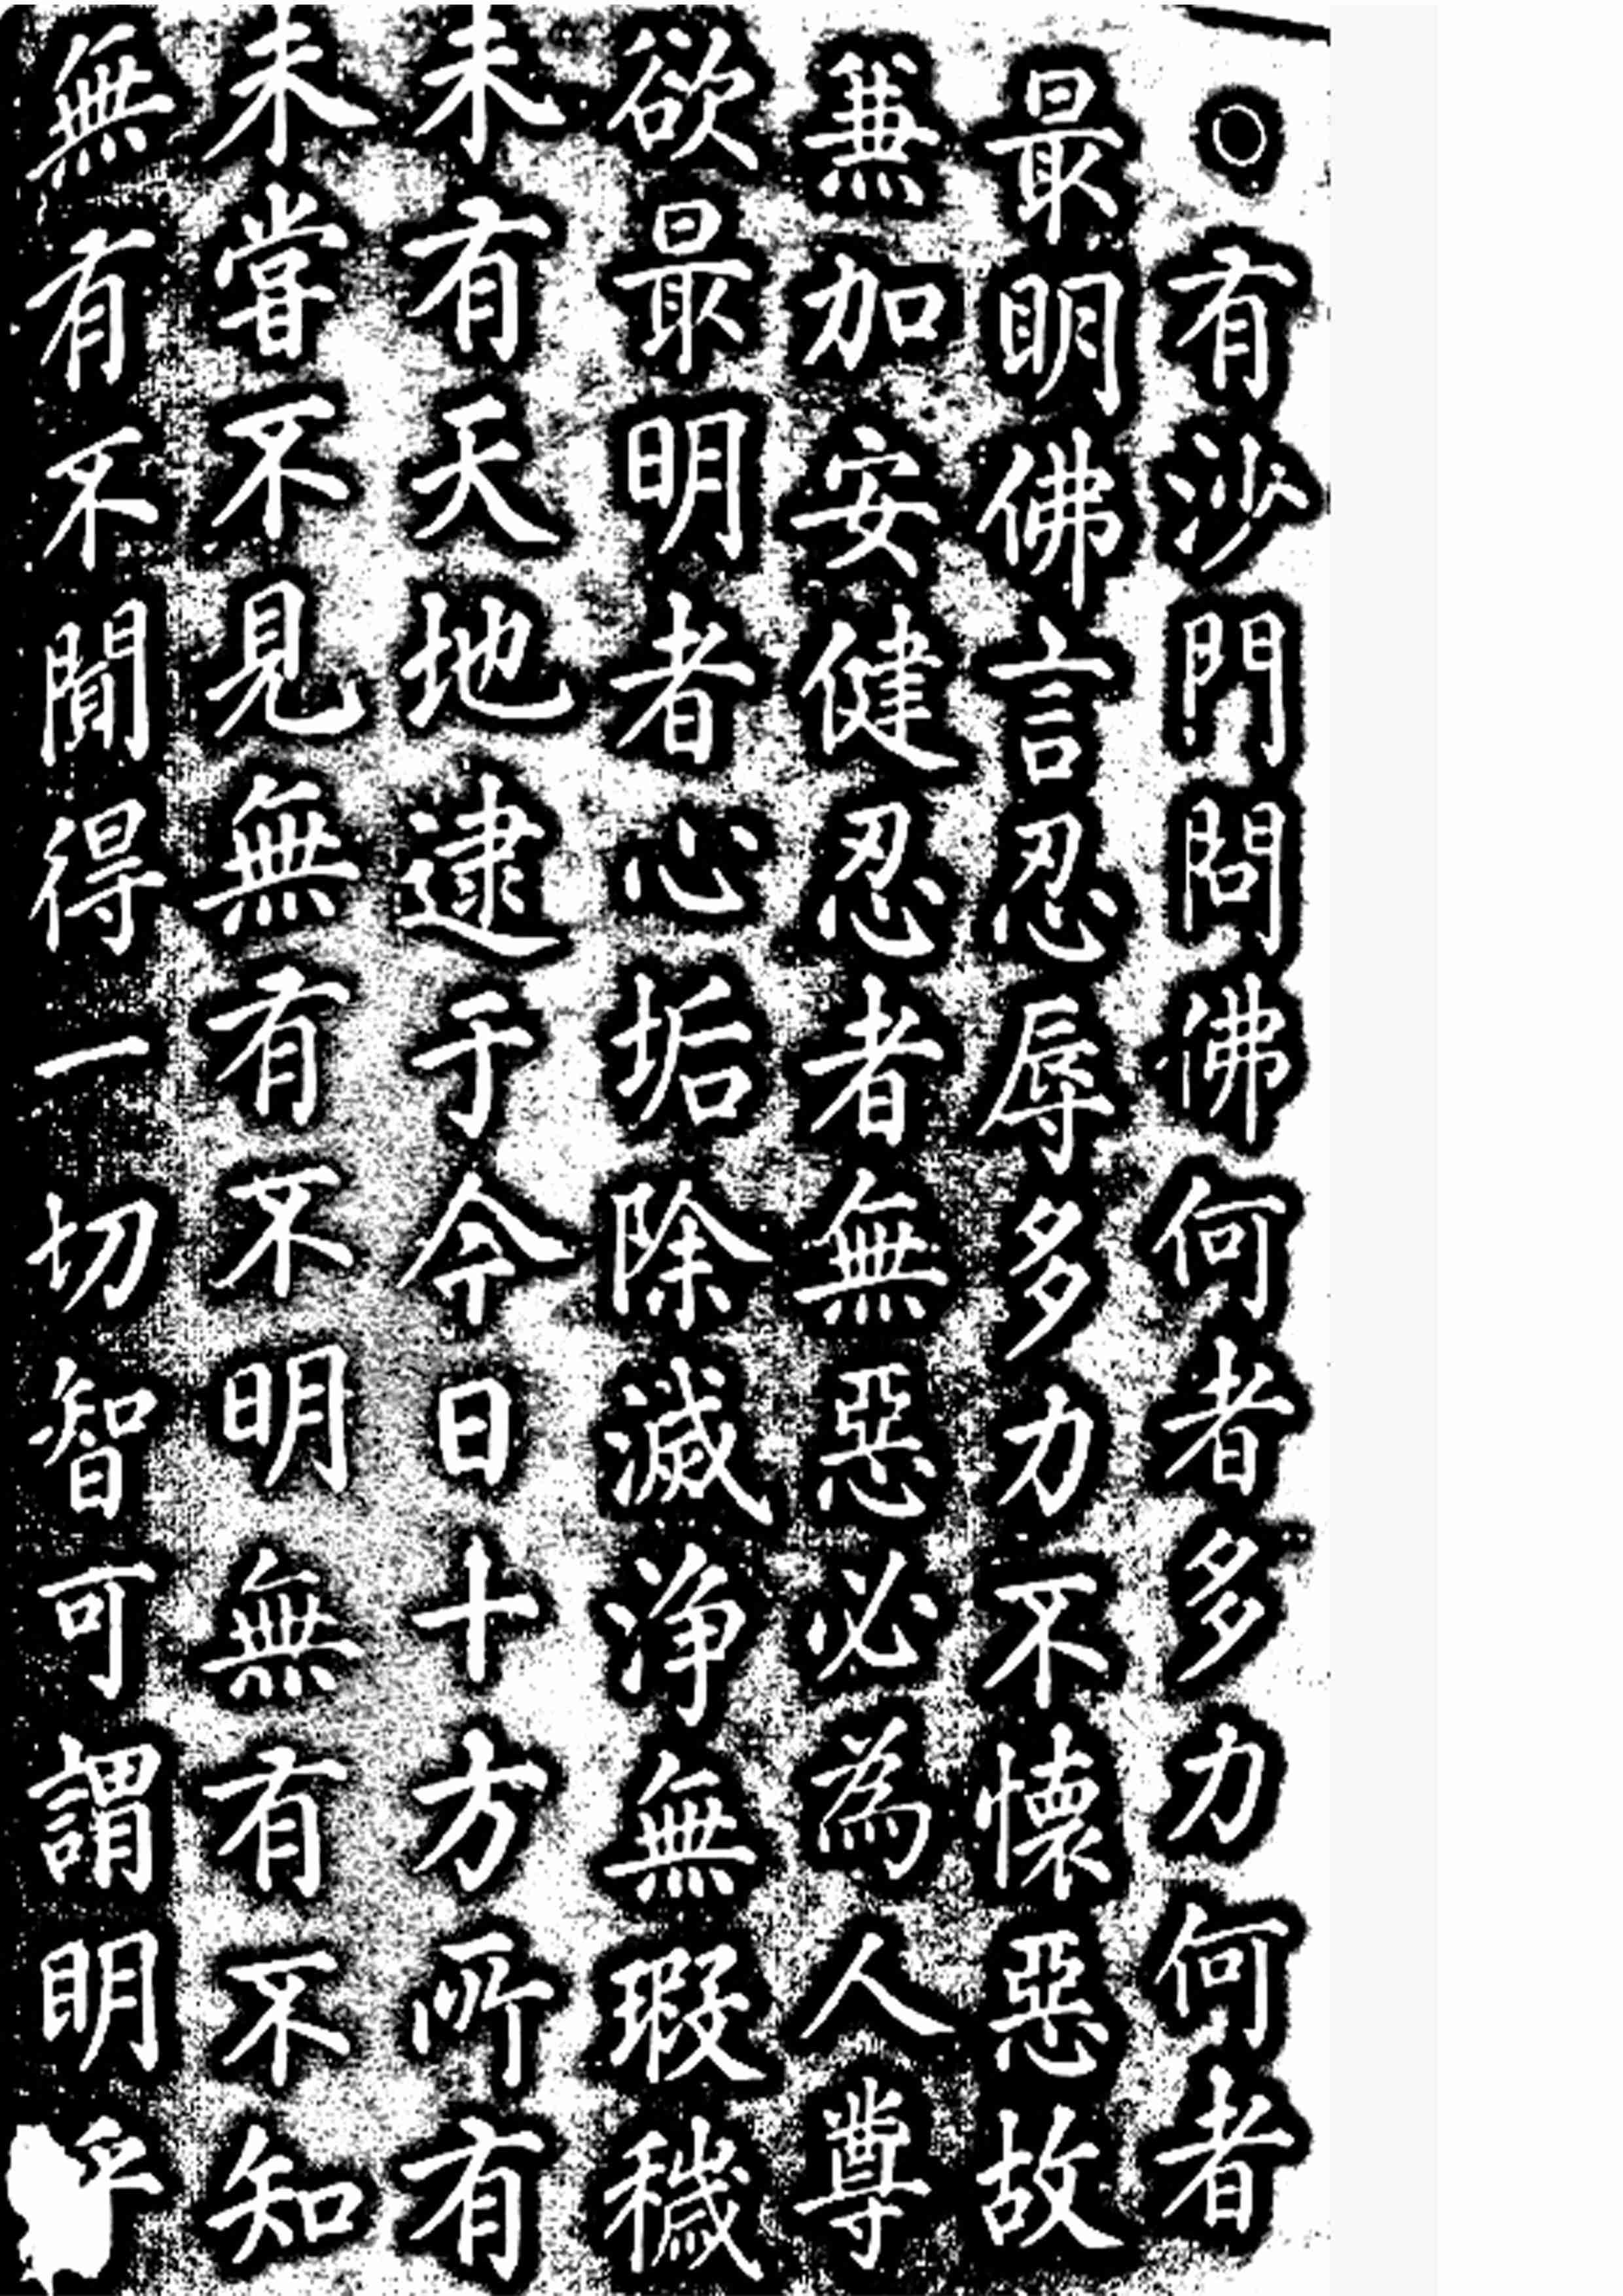 ○有沙門問佛何者多力何者
最明佛言忍辱多力不懷惡故
兼加安健忍者無惡必為人尊
欲最明者心垢除滅淨無瑕穢
未有天地逮于今日十方所有
未嘗不見無有不明無有不知
無有不聞得一切智可謂明乎